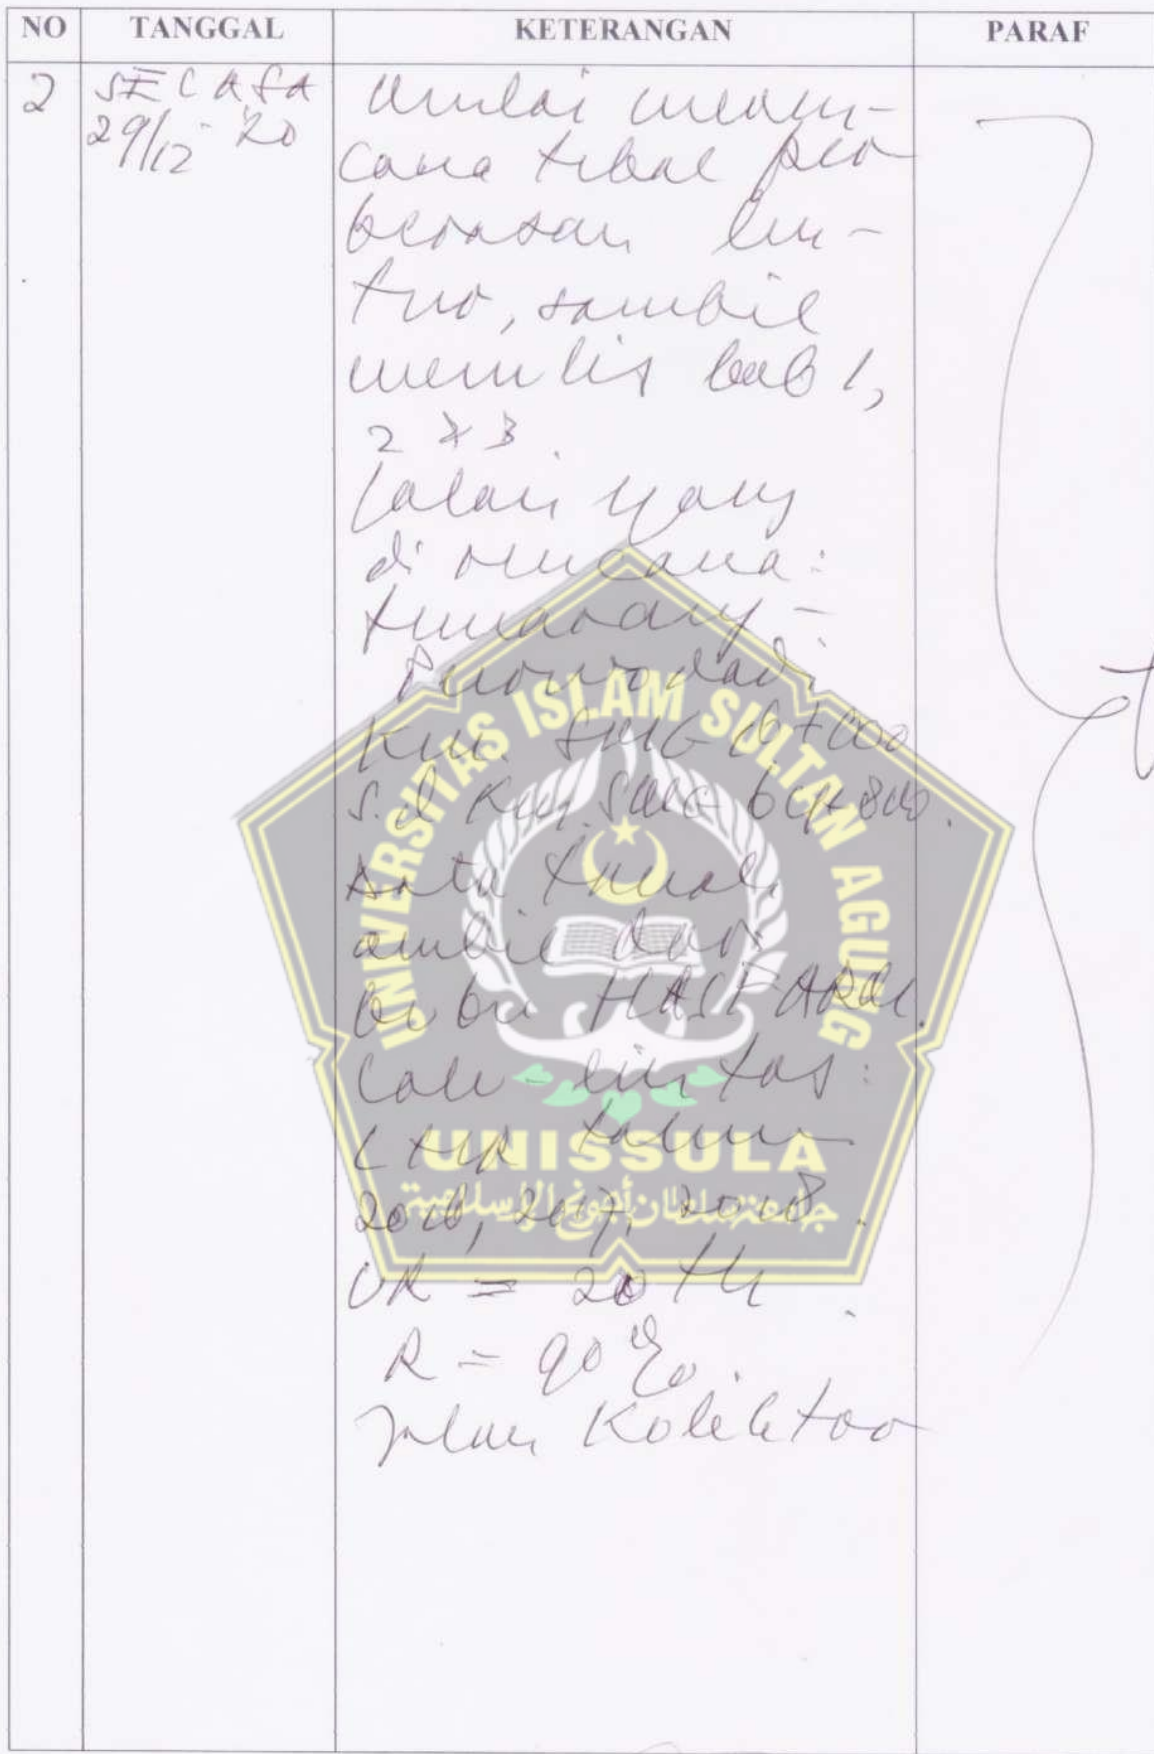 NO TANGGAL KETERANGAN PARAF
2 SELASA
29/12 - 20
Mulai meren-
cana tebal per
kerasan len-
tur, sambil
menulis bab 1,
2 & 3.
Jalan yang
di rencana:
Semarang -
Purwodadi
Km. SMG
s.d Km. SMG
Data tanah
ambil dari
Lalu-lintas:
LHR tahun
2016, 2017, 2018.
UR = 20 th.
R = 90%.
Jalan Kolektor
UNIVERSITAS ISLAM SULTAN AGUNG
UNISSULA
جامعة سلطان أجونج الإسلامية